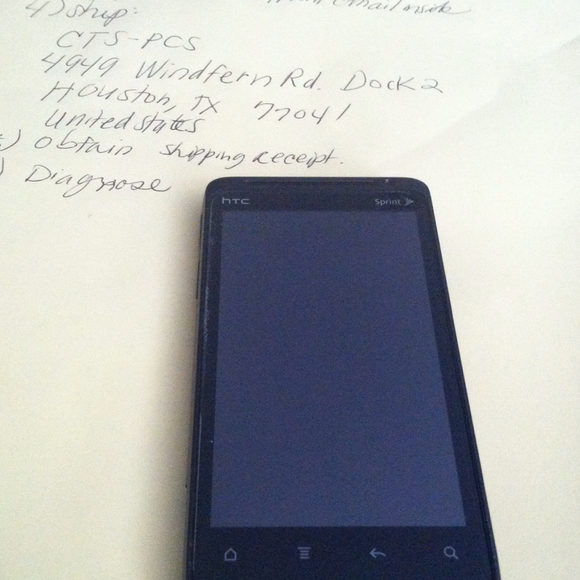 4) Ship:
email inside
CTS-PCS
4949 Windfern Rd. Dock 2
Houston, TX 77041
United States
) Obtain shipping receipt.
) Diagnose
hTC
Sprint